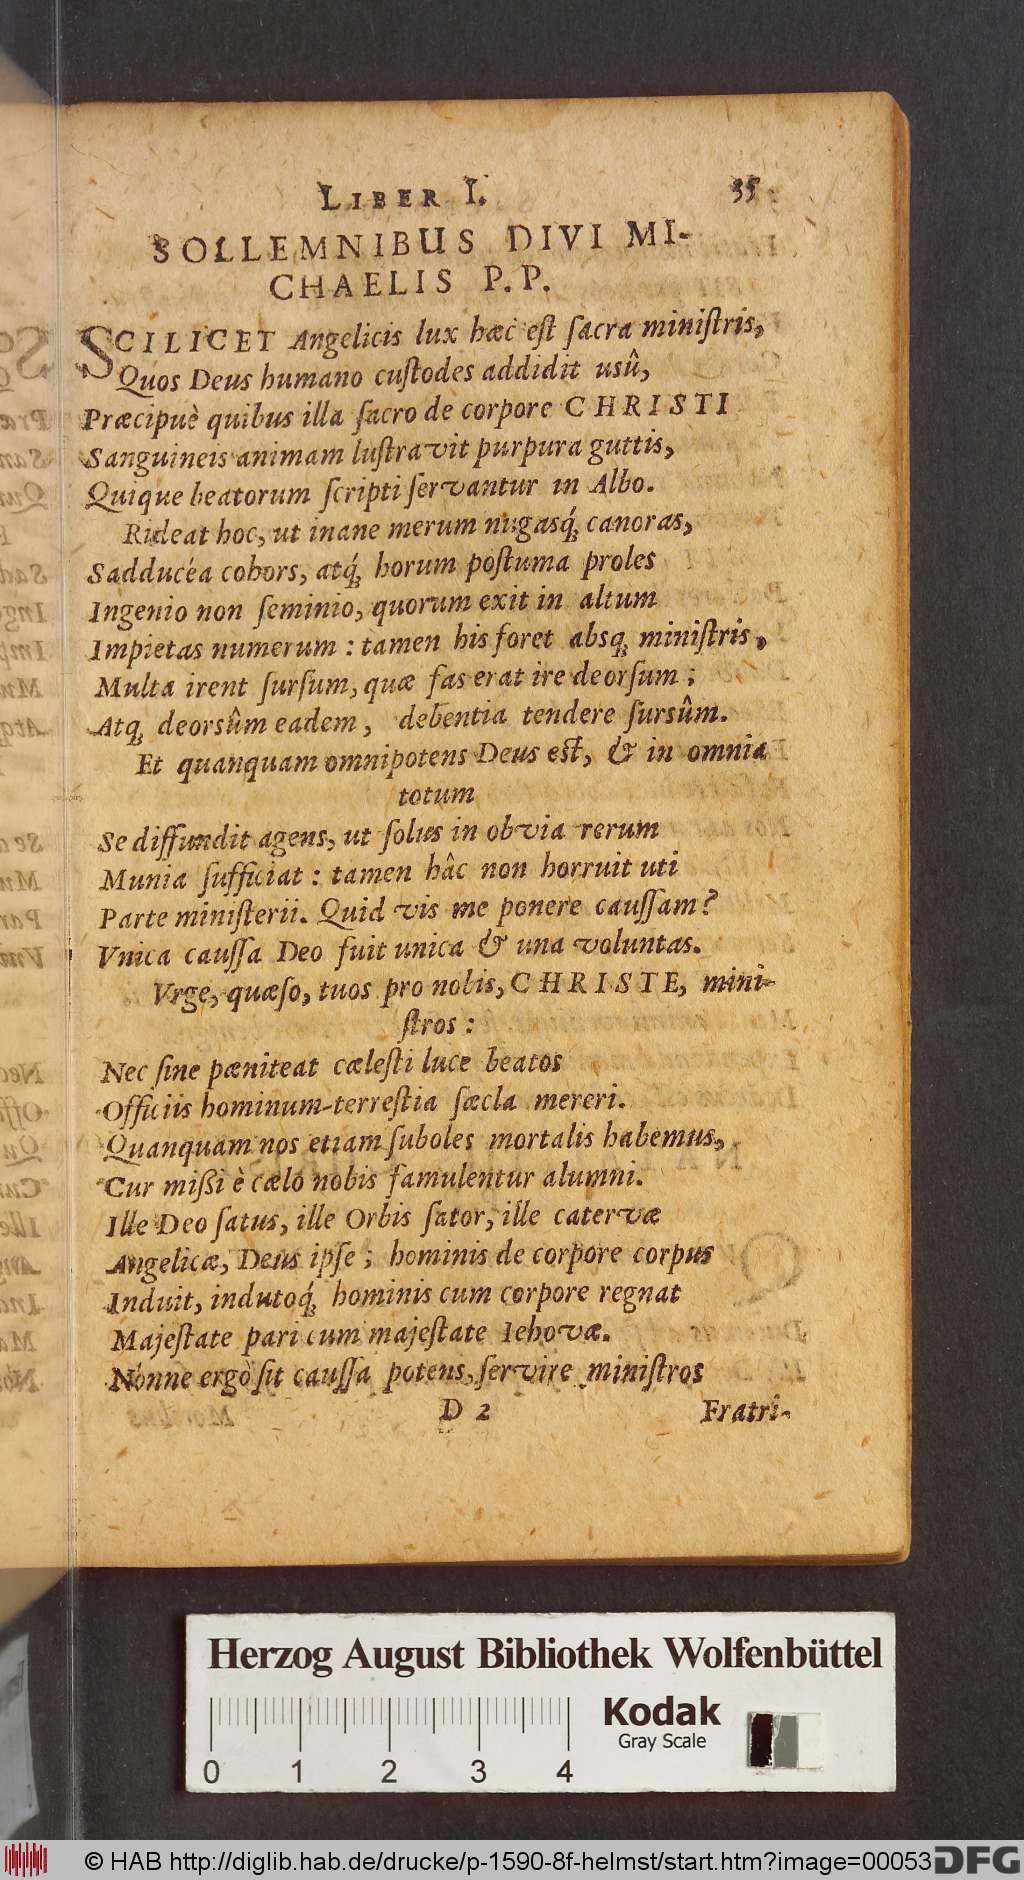 LIBER I. 35
SOLLEMNIBUS DIVI MI-
CHAELIS P.P.
SCILICET Angelicis lux hæc est ſacra miniſtris,
Quos Deus humano cuſtodes addidit usû,
Præcipuè quibus illa ſacro de corpore CHRISTI
Sanguineis animam luſtravit purpura guttis,
Quique beatorum ſcripti ſervantur in Albo.
Rideat hoc, ut inane merum nugasq́; canoras,
Sadducéa cohors, atq́; horum poſtuma proles
Ingenio non ſeminio, quorum exit in altum
Impietas numerum : tamen his foret absq; miniſtris,
Multa irent ſurſum, quæ fas erat ire deorſum ;
Atq; deorsûm eadem, debentia tendere ſursûm.
Et quanquam omnipotens Deus eſt, & in omnia
totum
Se diffundit agens, ut ſolus in obvia rerum
Munia ſufficiat : tamen hâc non horruit uti
Parte miniſterii. Quid vis me ponere cauſſam?
Vnica cauſſa Deo fuit unica & una voluntas.
Vrge, quæſo, tuos pro nobis, CHRISTE, mini-
ſtros :
Nec ſine pæniteat cæleſti luce beatos
Officiis hominum terreſtia ſæcla mereri.
Quanquam nos etiam ſuboles mortalis habemus,
Cur miſſi è cælo nobis famulentur alumni.
Ille Deo ſatus, ille Orbis ſator, ille catervæ
Angelicæ, Deus ipſe ; hominis de corpore corpus
Induit, indutoq́; hominis cum corpore regnat
Majeſtate pari cum majeſtate Iehovæ.
Nónne ergò ſit cauſſa potens, ſervire miniſtros
D 2 Fratri-
Herzog August Bibliothek Wolfenbüttel
0 1 2 3 4
Kodak
Gray Scale
© HAB http://diglib.hab.de/drucke/p-1590-8f-helmst/start.htm?image=00053
DFG